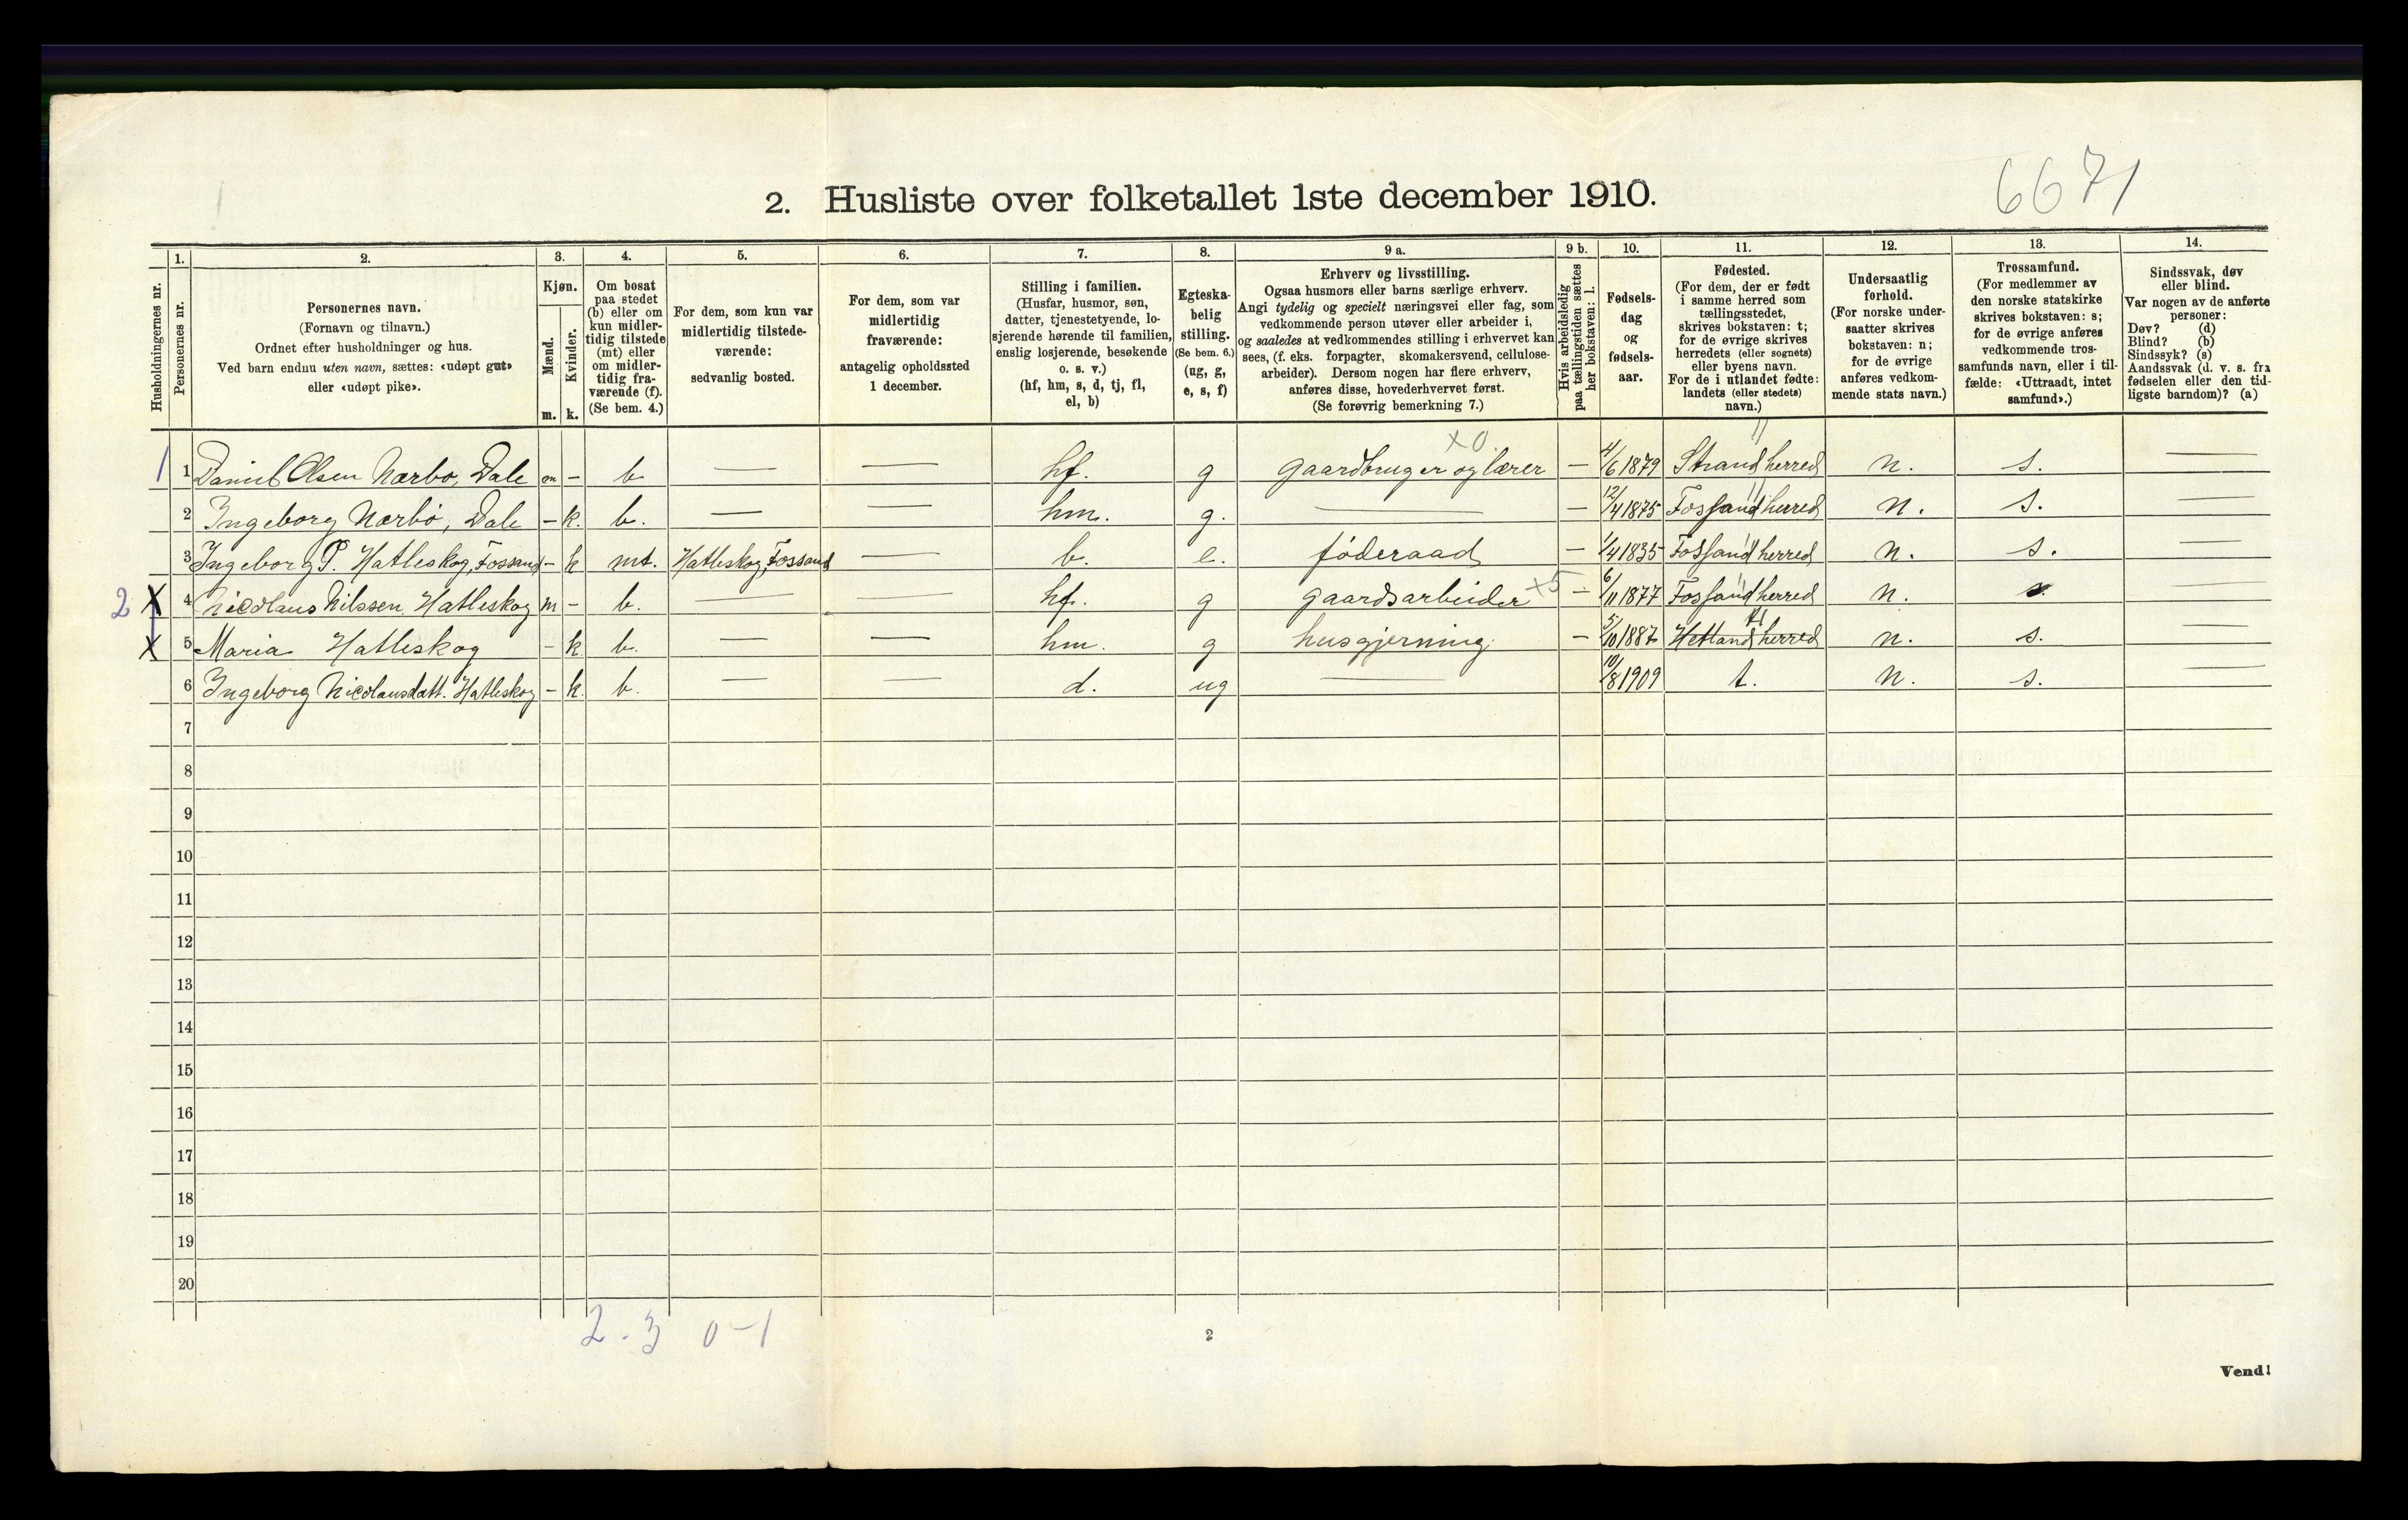 6671
2. Husliste over folketallet 1ste december 1910.
1. 2. 3. 4. 5. 6. 7. 8. 9 a. 9 b. 10. 11. 12. 13. 14.
Husholdningernes nr.
Personernes nr.
Personernes navn.
(Fornavn og tilnavn.)
Ordnet efter husholdninger og hus.
Ved barn endnu uten navn, sættes: «udøpt gut»
eller «udøpt pike».
Kjøn.
Mænd.
m.
Kvinder.
k.
Om bosat
paa stedet
(b) eller om
kun midler-
tidig tilstede
(mt) eller
om midler-
tidig fra-
værende (f).
(Se bem. 4.)
For dem, som kun var
midlertidig tilstede-
værende:
sedvanlig bosted.
For dem, som var
midlertidig
fraværende:
antagelig opholdssted
1 december.
Stilling i familien.
(Husfar, husmor, søn,
datter, tjenestetyende, lo-
sjerende hørende til familien,
enslig losjerende, besøkende
o. s. v.)
(hf, hm, s, d, tj, fl,
el, b)
Egteska-
belig
stilling.
(Se bem. 6.)
(ug, g,
e, s, f)
Erhverv og livsstilling.
Ogsaa husmors eller barns særlige erhverv.
Angi tydelig og specielt næringsvei eller fag, som
vedkommende person utøver eller arbeider i,
og saaledes at vedkommendes stilling i erhvervet kan
sees, (f. eks. forpagter, skomakersvend, cellulose-
arbeider). Dersom nogen har flere erhverv,
anføres disse, hovederhvervet først.
(Se forøvrig bemerkning 7.)
Hvis arbeidsledig
paa tællingstiden sættes
her bokstaven: l.
Fødsels-
dag
og
fødsels-
aar.
Fødested.
(For dem, der er født
i samme herred som
tællingsstedet,
skrives bokstaven: t;
for de øvrige skrives
herredets (eller sognets)
eller byens navn.
For de i utlandet fødte:
landets (eller stedets)
navn.)
Undersaatlig
forhold.
(For norske under-
saatter skrives
bokstaven: n;
for de øvrige
anføres vedkom-
mende stats navn.)
Trossamfund.
(For medlemmer av
den norske statskirke
skrives bokstaven: s;
for de øvrige anføres
vedkommende tros-
samfunds navn, eller i til-
fælde: «Uttraadt, intet
samfund».)
Sindssvak, døv
eller blind.
Var nogen av de anførte
personer:
Døv? (d)
Blind? (b)
Sindssyk? (s)
Aandssvak (d. v. s. fra
fødselen eller den tid-
ligste barndom)? (a)
x 0.
1 1 Daniel Olsen Nærbø, Dale m – b — — hf. g gaardbruger og lærer – 4/6 1879 Strand herred n. s. —
2 Ingeborg Nærbø, Dale – k. b. — — hm. g. — – 12/4 1875 Fossand herred n. s. —
3 Ingeborg P. Hatleskog, Fossand – k mt. Hatleskog, Fossand — b. e. føderaad – 1/4 1835 Fossand herred n. s.
2 X 4 Nicolaus Nilssen Hatleskog m – b. — — hf. g gaardsarbeider x5 – 6/11 1877 Fossand herred n. s. —
X 5 Maria Hatleskog – k b. — — hm. g husgjerning. – 5/10 1887 Hetland herred n. s. —
6 Ingeborg Nicolausdatt. Hatleskog – k. b. — — d. ug — 10/8 1909 t. n. s. —
7
8
9
10
11
12
13
14
15
16
17
18
19
20
2 - 3 0 - 1
2
Vend!